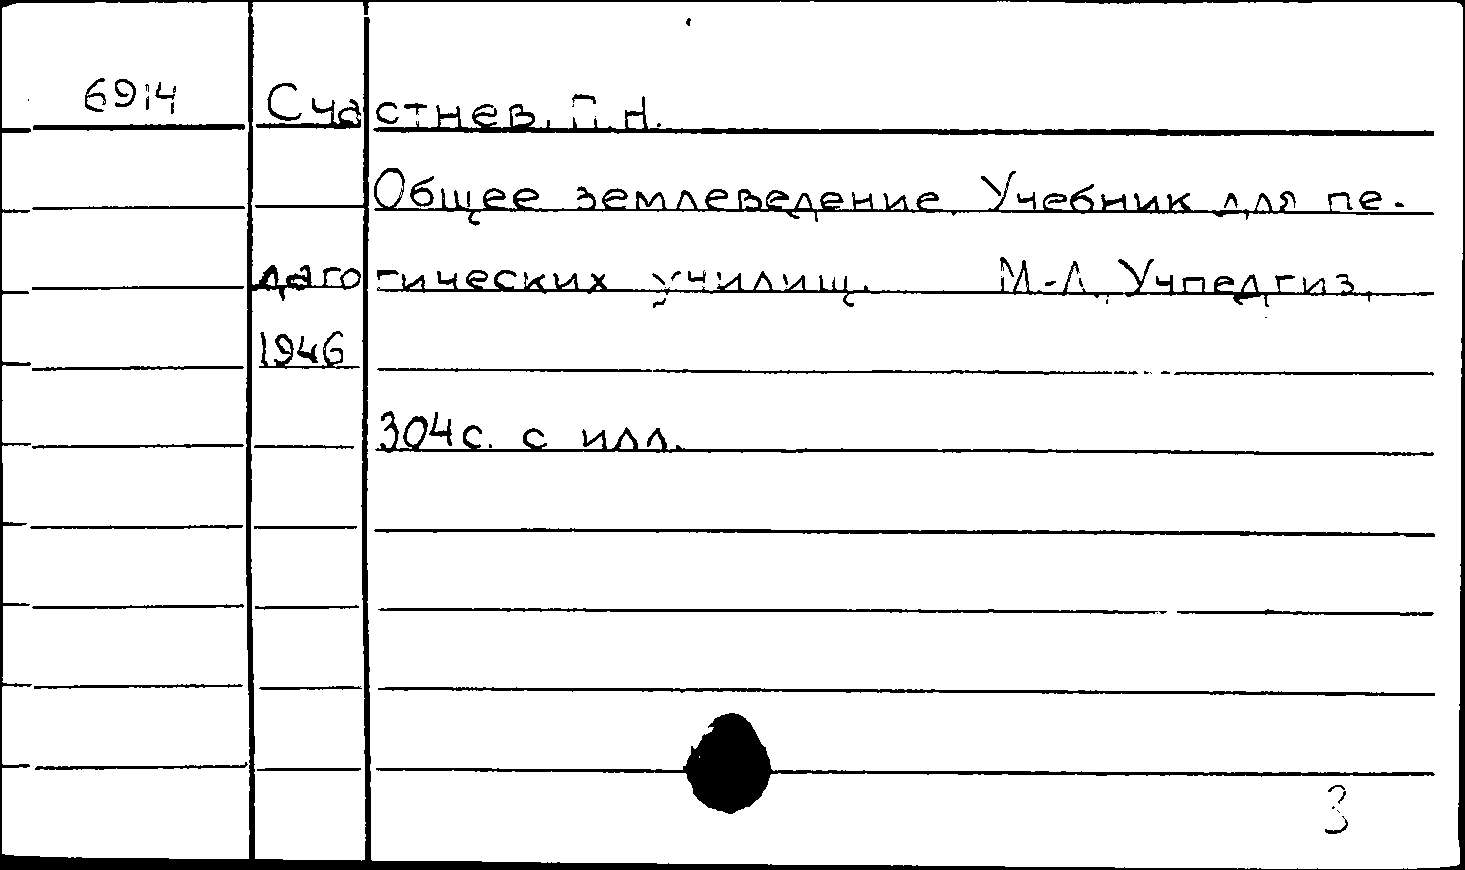 6914 Счастнев, П.Н.
Общее землеведение. Учебник для пе-
дагогических училищ. М.-Л., Учпедгиз,
1946
304с. с илл.
3